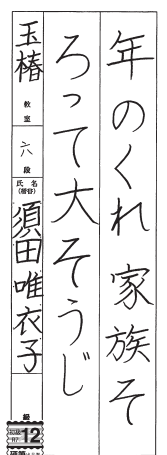 年のくれ 家族そ
ろって大そうじ
玉椿
教室
六段
氏名
須田唯衣子
級
12